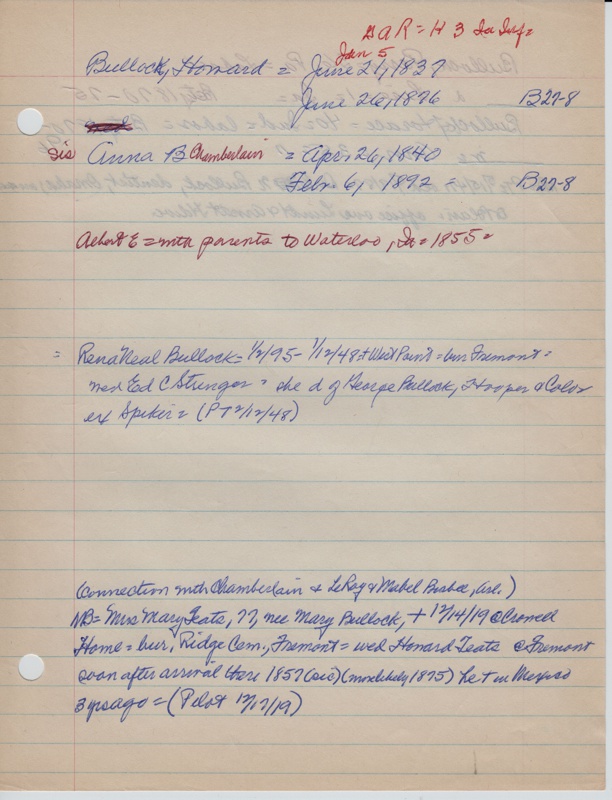 GAR = H 3 Ia Inf =
Jan 5
Bullock, Howard = June 21, 1837
June 26, 1876 B27-8
sis Anna B Chamberlain = Apr. 26, 1840
Febr. 6, 1892 = B27-8
Albert E = with parents to Waterloo, Ia = 1855 =
= Rena Neal Bullock = 1/2/95 - 7/12/48 + West Point = bur Fremont =
wed Ed C Stringer = she d of George Bullock, Hooper & Color
ex Spiker = (PT 2/12/48)
(Connection with Chamberlain & LeRoy & Mabel Busboe, Arl.)
NB = Mrs Mary Teats, 77, nee Mary Bullock, + 12/14/19 @ Crowell
Home = bur, Ridge Cem., Fremont = wed Howard Teats @ Fremont
soon after arrival there 1857 (sic) (more likely 1875) he + in Mexico
3 yrs ago = (Pilot 12/17/19)